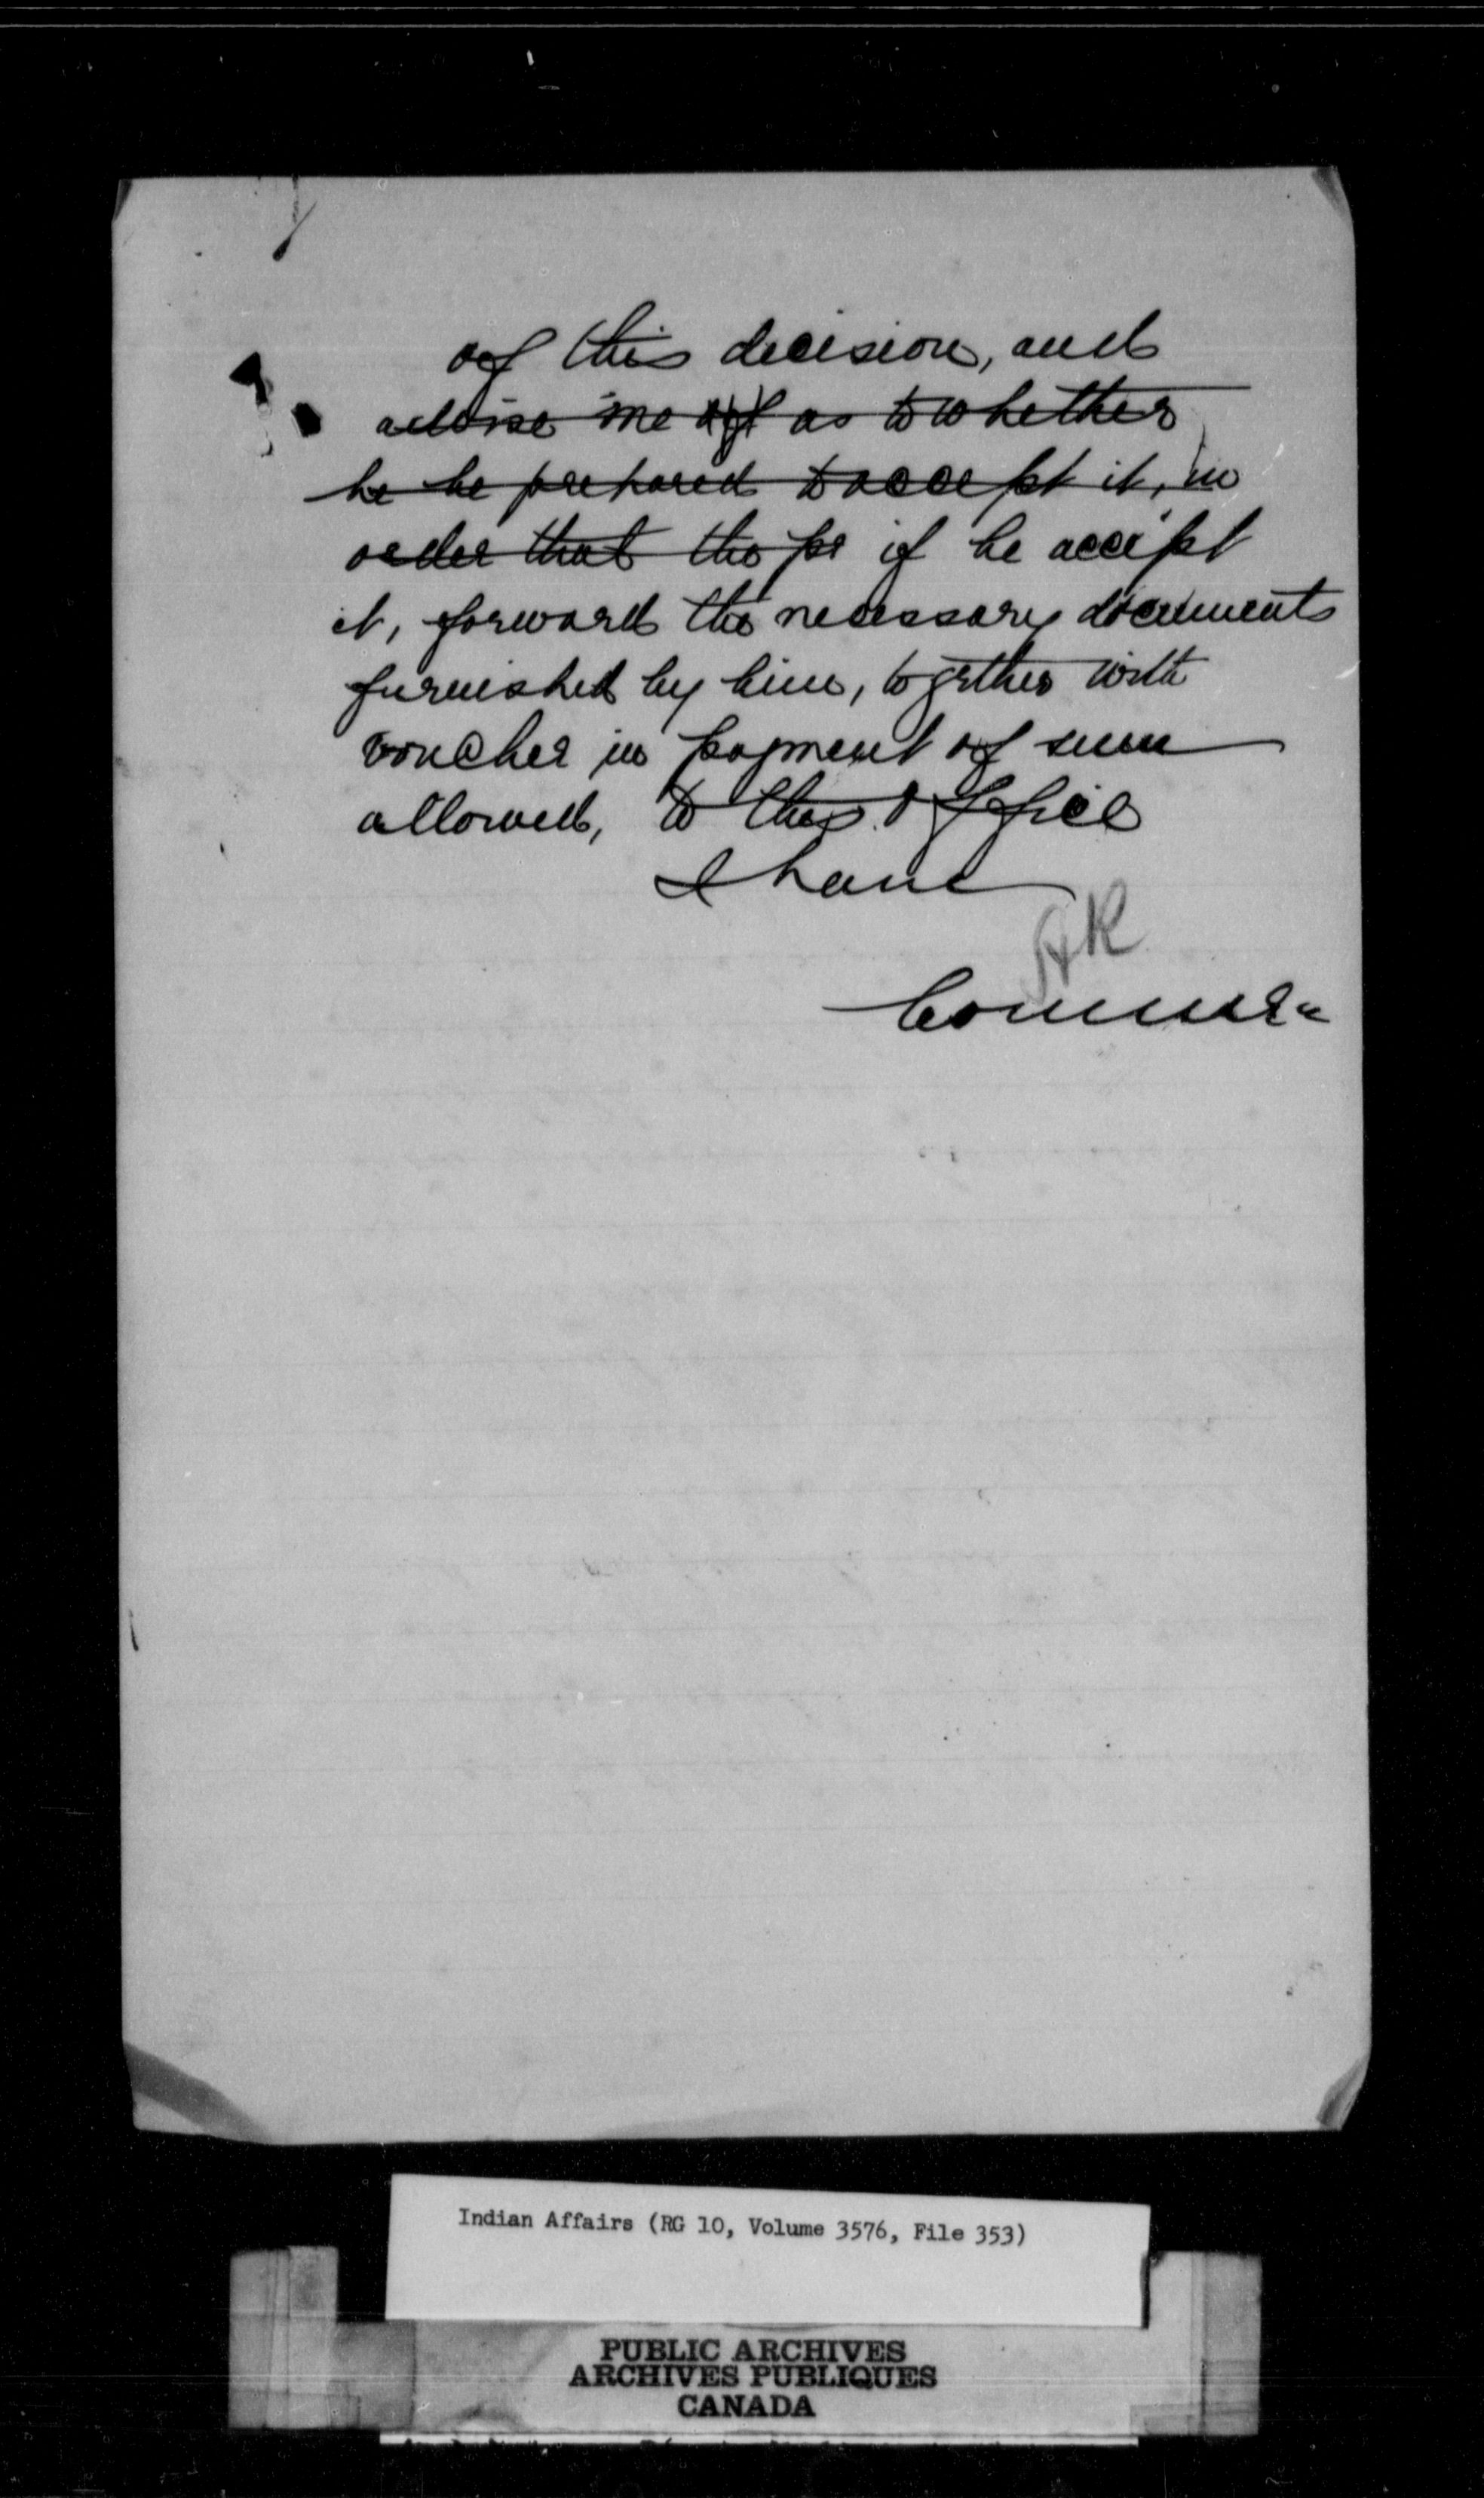 of this decision, and
advise me of as to whether
he be prepared to accept it, in
order that the pr if he accept
it, forward the necessary documents
furnished by him, together with
voucher in payment of sum
allowed, to this Office
I have
HR
Commsr
Indian Affairs (RG 10, Volume 3576, File 353)
PUBLIC ARCHIVES
ARCHIVES PUBLIQUES
CANADA